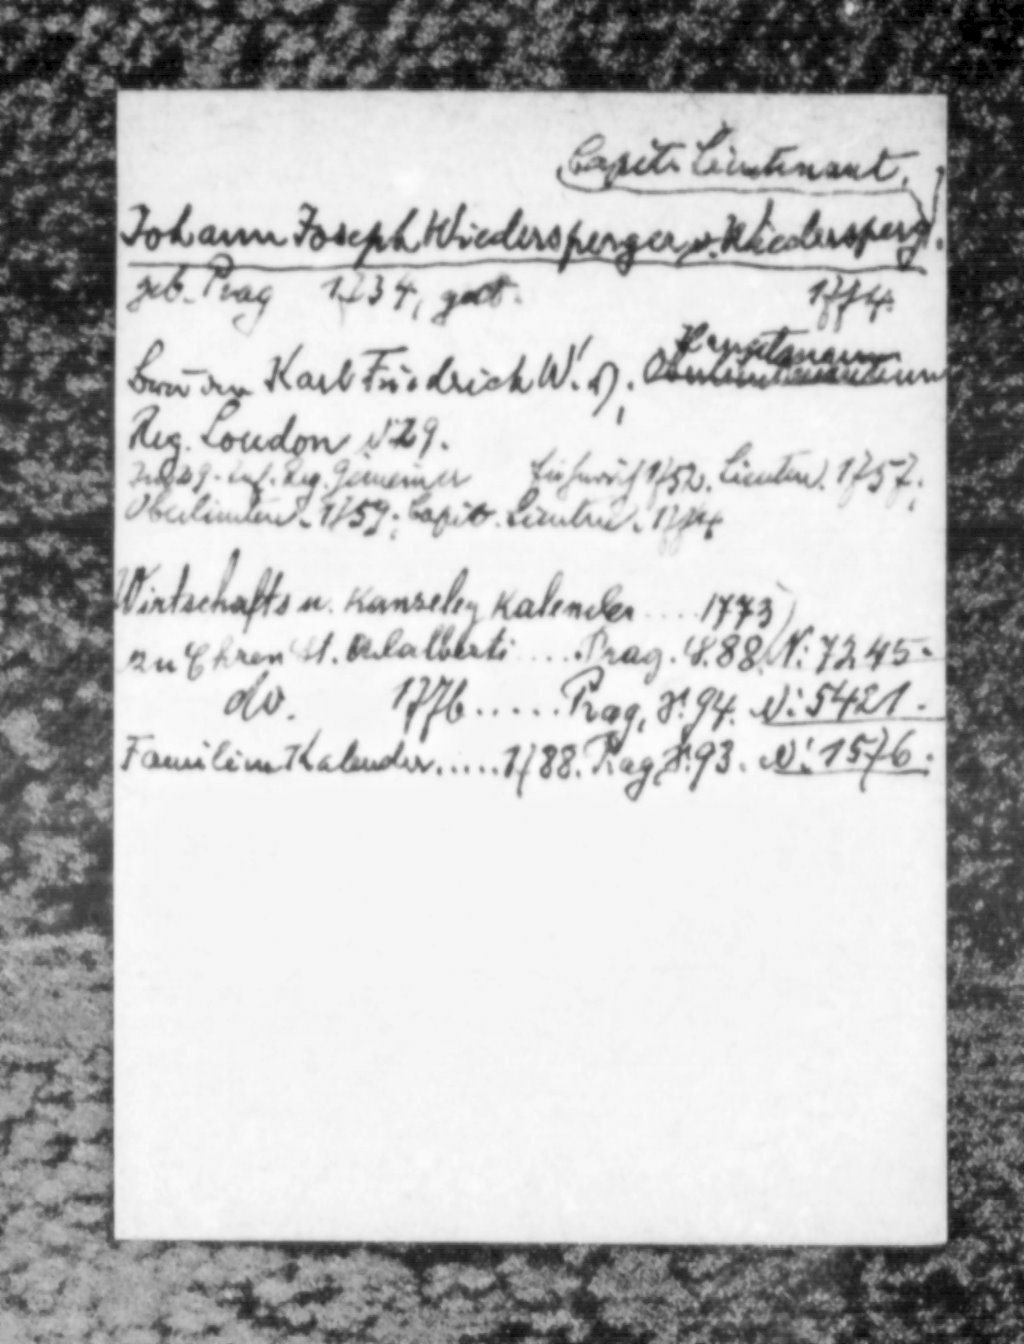 Capit. Lieutenant.
Johann Joseph Wiedersperger v. Wiedersperg.
geb. Prag 1734, gest. 1774.
Karl Friedrich W. v. Hauptmann
Reg. Loudon N. 29.
29. Inf. Reg. Gemeiner 1752. Lieuten. 1757.
Oberlieuten. 1759. Capit. Lieuten. 1774
Wirtschafts u. Kanzeley Kalender .... 1773)
zu Ehren St. Adalberti .... Prag. S. 88. N: 7245.
do. 1776 ..... Prag, S. 94. N: 5421.
Familien Kalender ..... 1788. Prag S. 93. N: 1576.